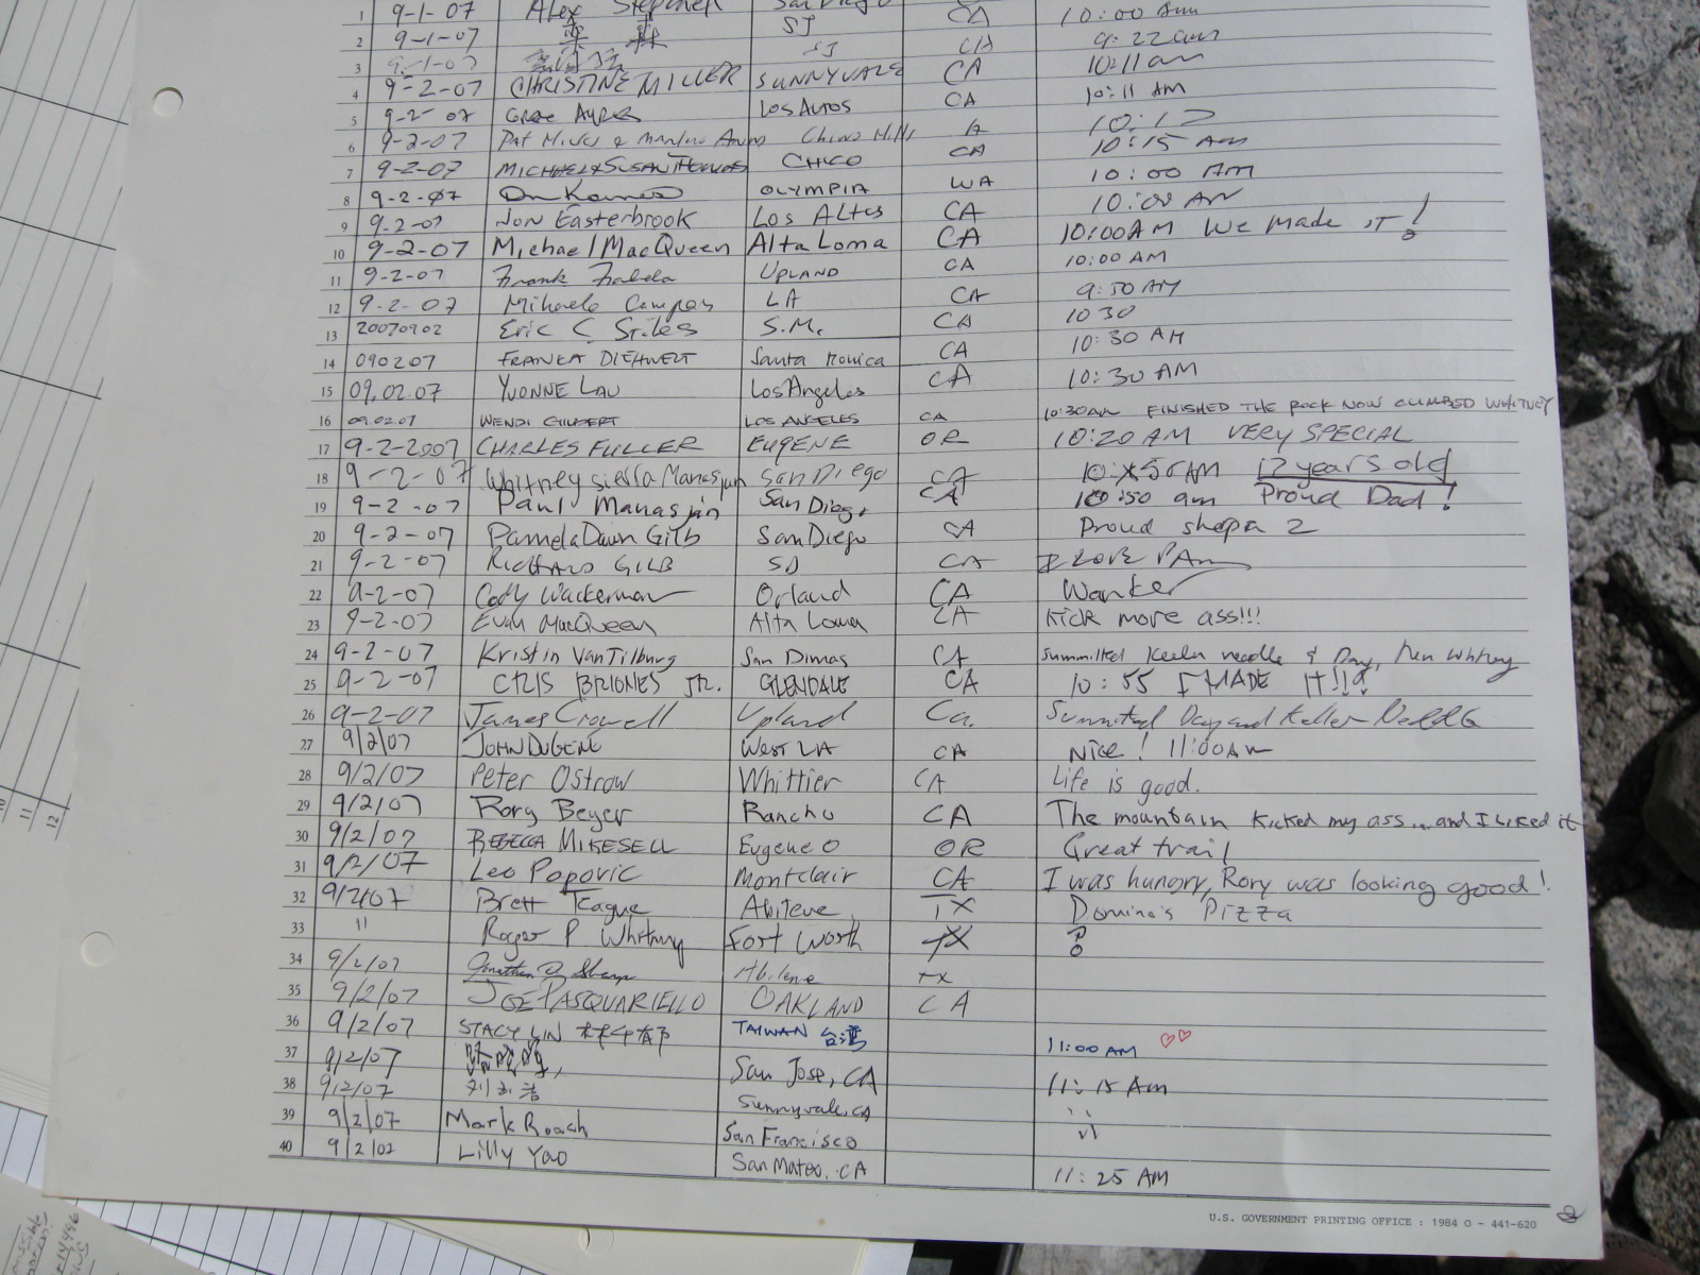 1 9-1-07 Alex Stephen San Diego CA 10:00 am
2 9-1-07 SJ CA 9:22 am
3 9-1-07 SJ CA 10:11 am
4 9-2-07 CHRISTINE MILLER SUNNYVALE CA 10:11 AM
5 9-2-07 Los Altos CA 10:12
6 9-2-07 Pat & Chino Hills 10:15 am
7 9-2-07 MICHAEL & SUSAN CHICO CA 10:00 AM
8 9-2-07 OLYMPIA WA 10:00 AM
9 9-2-07 Jon Easterbrook Los Altos CA 10:00AM We Made it!
10 9-2-07 Michael MacQueen Alta Loma CA 10:00 AM
11 9-2-07 Frank Upland CA 9:50 AM
12 9-2-07 Mihaela Campos LA CA 1030
13 20070902 Eric C Stiles S.M. CA 10:30 AM
14 090207 FRANKA Santa Monica CA
15 09.02.07 YVONNE LAU Los Angeles CA 10:30 AM
16 09.02.07 WENDI GILBERT LOS ANGELES CA 10:30AM FINISHED THE ROCK NOW CLIMBED WHITNEY
17 9-2-2007 CHARLES FULLER EUGENE OR 10:20 AM VERY SPECIAL
18 9-2-07 Whitney Sierra Manasjan San Diego CA 12 years old
19 9-2-07 Paul Manasjan San Diego CA 10:50 am Proud Dad!
20 9-2-07 Pamela Dawn Gilb San Diego CA Proud sherpa 2
21 9-2-07 RICHARD GILB SD CA I LOVE PAM
22 9-2-07 Cody Wackerman Orland CA Wanker
23 9-2-07 Evan MacQueen Alta Loma CA Kick more ass!!!
24 9-2-07 Kristin VanTilburg San Dimas CA Summitted Keeler needle & Day, then Whitney
25 9-2-07 CRIS BRIONES JR. GLENDALE CA 10:55 I MADE IT!!!
26 9-2-07 James Crowell Upland Ca. Summited Day and Keller Needle
27 9/2/07 JOHN DUGENE WEST LA CA NICE! 11:00AM
28 9/2/07 Peter Ostrow Whittier CA Life is good.
29 9/2/07 Rory Beyer Rancho CA The mountain kicked my ass... and I liked it
30 9/2/07 REBECCA MIKESELL Eugene O OR Great trail
31 9/2/07 Leo Popovic Montclair CA I was hungry, Rory was looking good!
32 9/2/07 Brett Teague Abilene, TX Domino's Pizza
33 " Roger P Whitney Fort Worth TX ?
34 9/2/07 Jonathan D Sharp Abilene TX
35 9/2/07 JOE PASQUARIELLO OAKLAND CA
36 9/2/07 STACY LIN TAIWAN 台湾 11:00 AM
37 9/2/07 San Jose, CA 11:15 Am
38 9/2/07 Sunnyvale, CA
39 9/2/07 Mark Roach San Francisco
40 9/2/07 Lilly Yao San Mateo, CA 11:25 AM
U.S. GOVERNMENT PRINTING OFFICE : 1984 O - 441-620
10
11
12